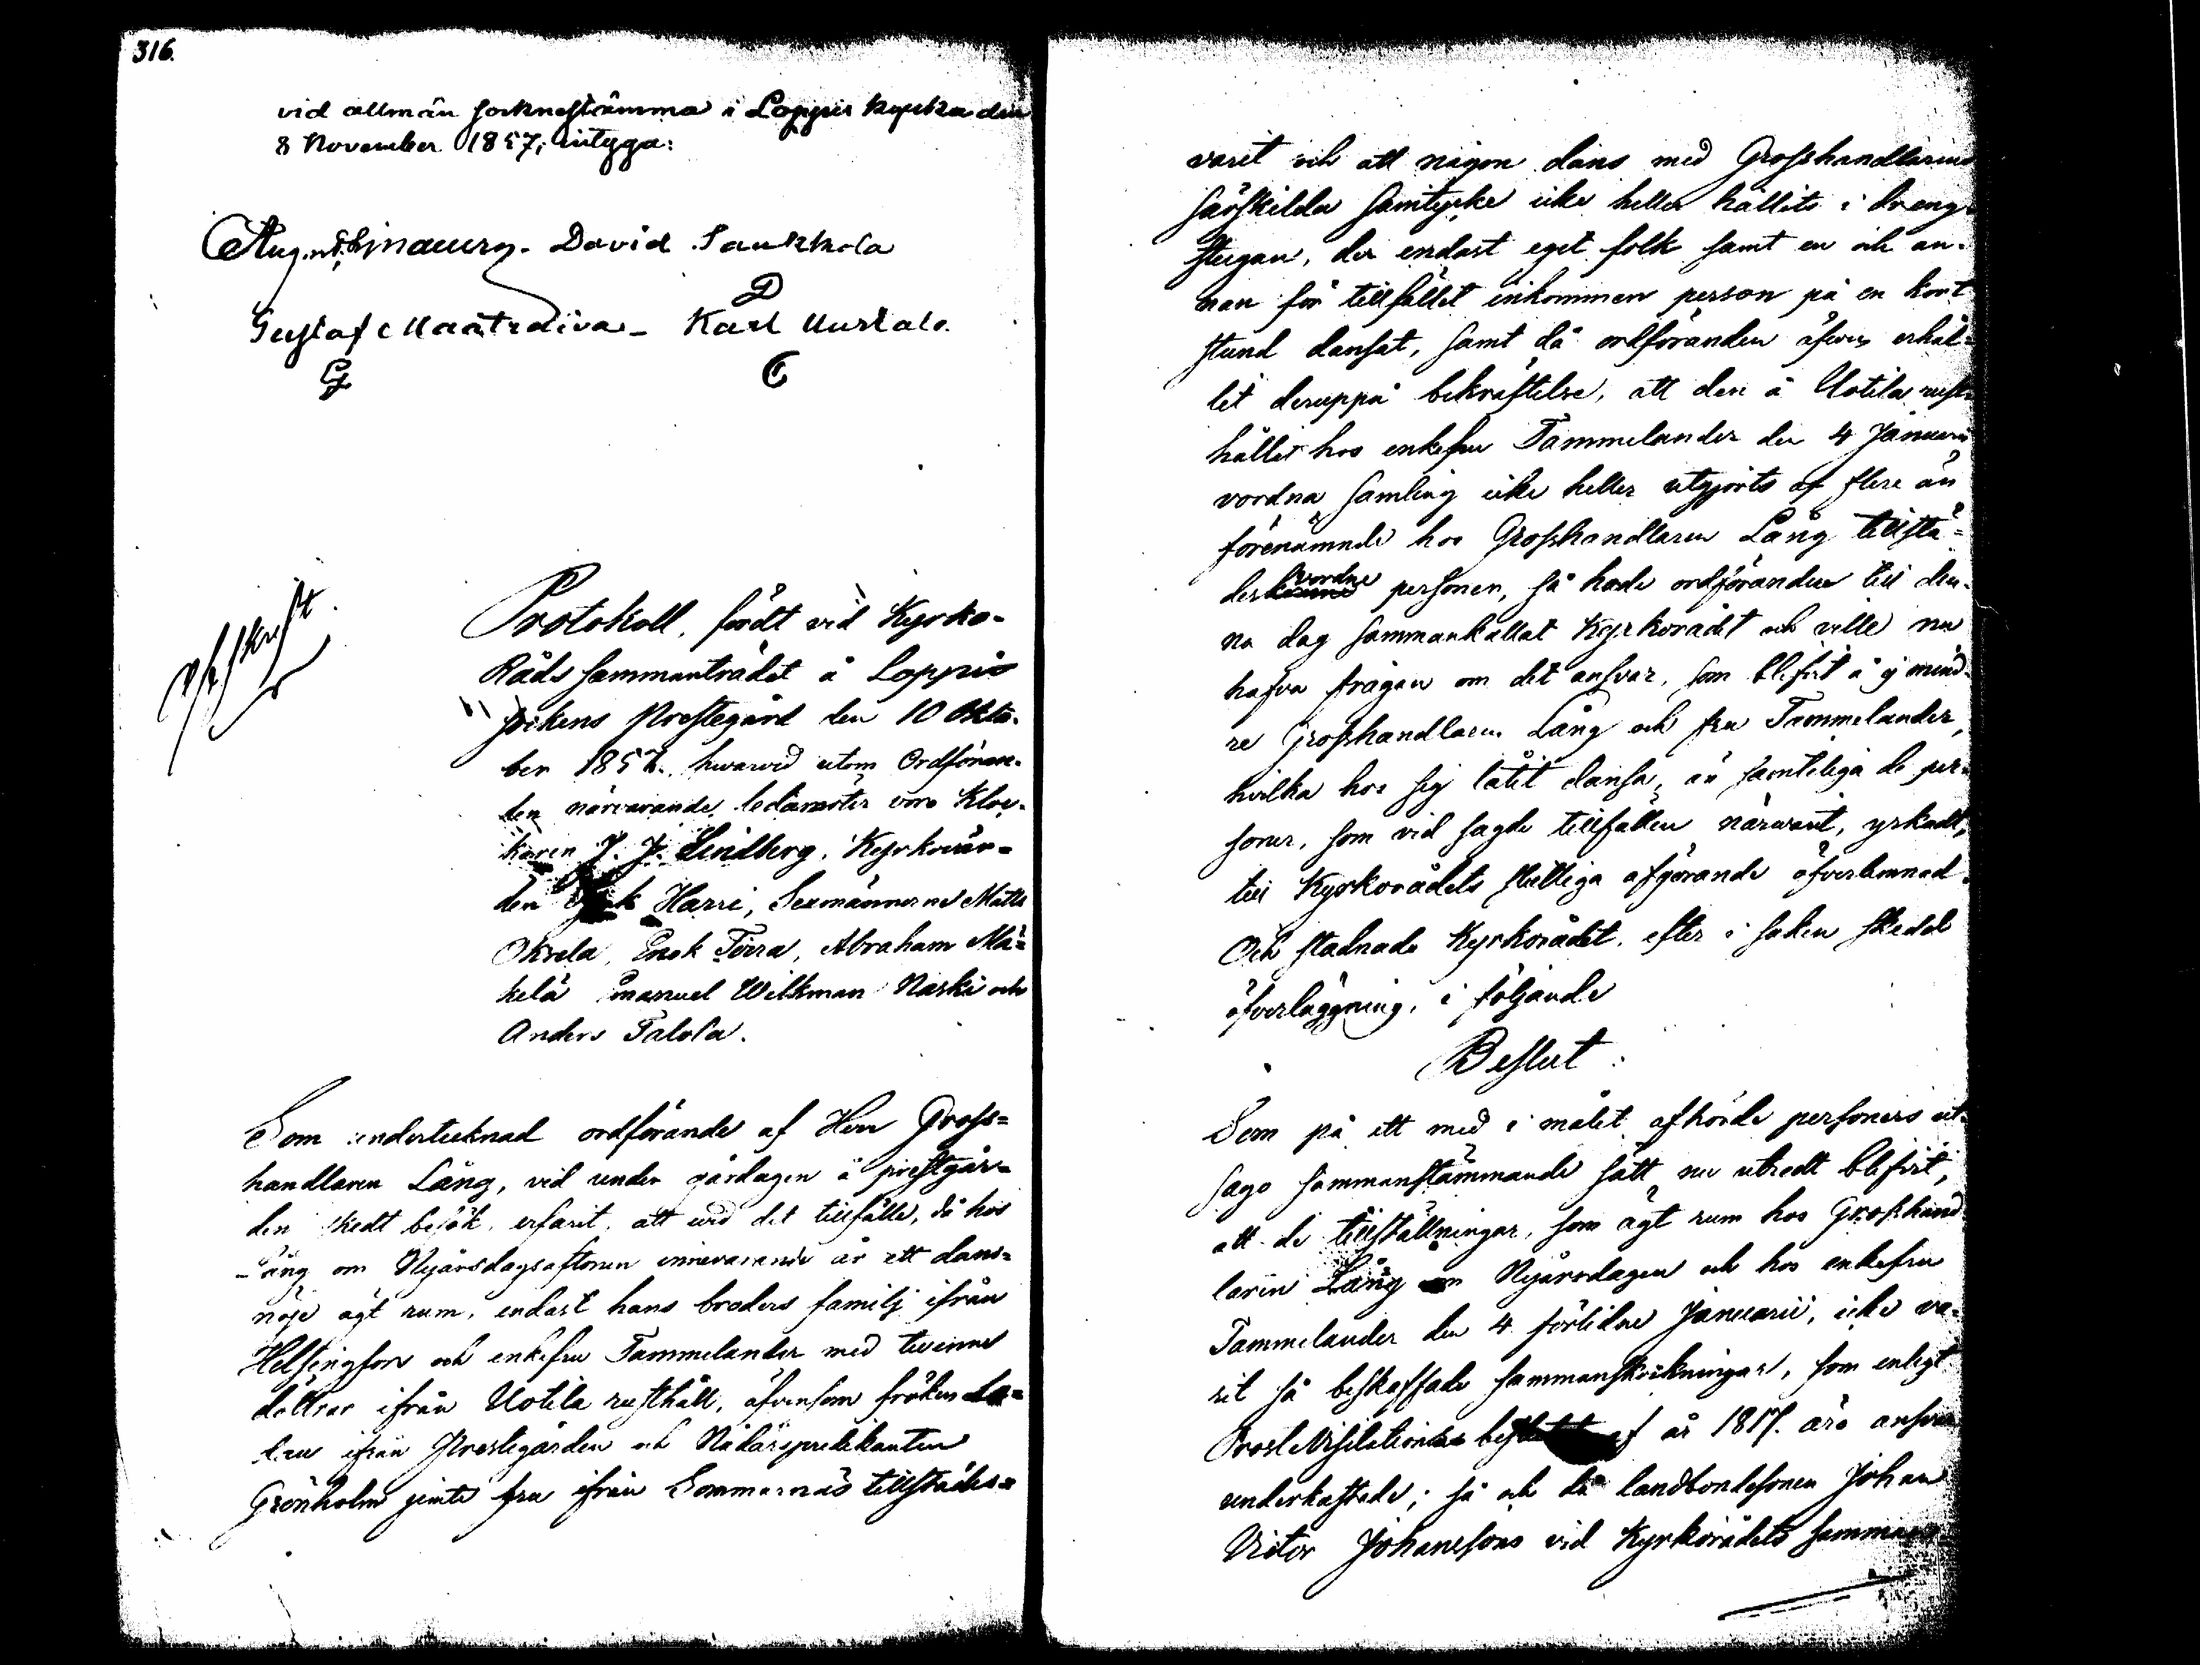 316.
vid allmän Sockne stämma i Loppis kyrka den
8 November 1857, intyga:
David Saukkola
D
Gustaf Karl Uustalo
G C
Afskrift
Protokoll, fördt vid Kyrko-
Råds sammanträdet å Loppis
Sockens Prestegård den 10 Okto-
ber 1857. hvarvid utom Ordföran-
den närvarande ledamöter voro Kloc-
karen J. J. Lindberg, Kyrkovär-
den Harri, Sexmännerne Matts
Okrola, Enok Törra, Abraham Mä-
kelä Emanuel Wilkman Naski och
Anders Talola.
Som undertecknad ordförande af Herr Gross-
handlaren Lång, vid under gårdagen å prestgår-
den skedt besök, erfarit, att wid det tillfälle, då hos
Lång om Nyårsdagsaftonen innevarande år ett dans-
nöje ägt rum, endast hans broders familj ifrån
Helsingfors och enkefru Tammelander med tvenne
döttrar ifrån Uotila rusthåll, äfvensom fröken
ifrån Prestegården och Nådårspredikanten
Grönholm jemte fru ifrån Sommarnäs tillstädes-
varit och att någon dans med Grosshandlarens
särskilda samtycke icke heller hållits i dräng-
stugan, der endast eget folk samt en och an-
nan för tillfället inkommen person på en kort
stund dansat, samt då ordföranden äfven erhål-
lit deruppå bekräftelse, att den å Uotila rust-
hållet hos enkefru Tammelander den 4 Januarii
vordna samling icke heller utgjorts af flere än
förenämnde hos Grosshandlaren Lång tillstä-
des vordne personer, så hade ordföranden till den-
na dag sammankallat Kyrkorådet och ville nu
hafva frågan om det ansvar, som blifvit å ej mind-
re Grosshandlaren Lång och fru Tammelander,
hvilka hos sig låtit dansa, än samteliga de per-
soner, som vid sagde tillfällen närvarit, yrkadt,
till Kyrkorådets slutliga afgörande öfverlemnad.
Och stadnade Kyrkorådet, efter i saken skedd
öfverläggning, i följande
Beslut:
Som på ett med i målet afhörde personers ut-
sago sammanstämmande sätt nu utredt blifvit,
att de tillställningar, som ägt rum hos Grosshand-
laren Lång om Nyårsdagen och hos enkefru
Tammelander den 4 förlidne Januarii, icke va-
rit så beskaffade sammanskockningar, som enligt
Prost Visitations beslutet af år 1817. äro ansvar
underkastade; så och då landbondesonen Johan
Victor Johansson vid Kyrkorådets samman-